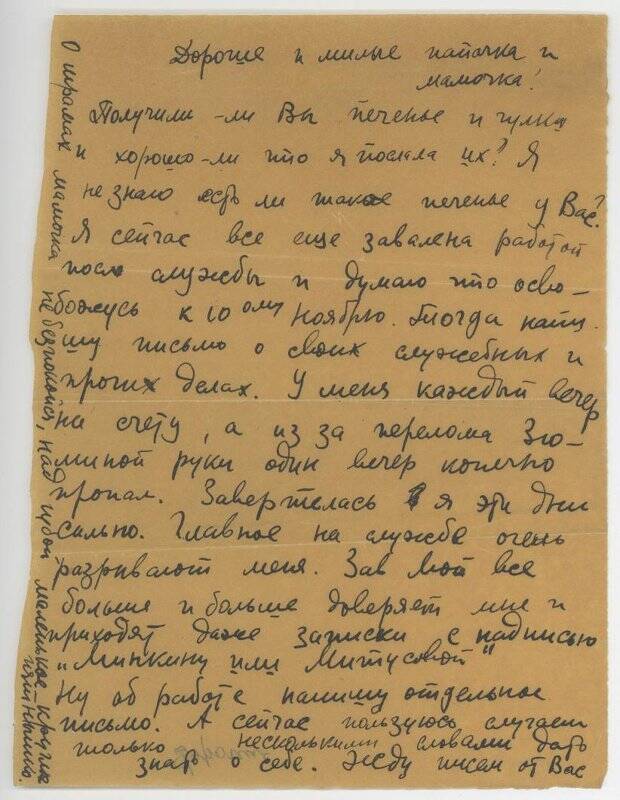 Дорогие и милые папочка и
мамочка!
Получили-ли Вы печенье и
и хорошо-ли что я послала их? Я
не знаю есть ли такое печенье у Вас?
Я сейчас все еще завалена работой
после службы и думаю что осво-
божусь к 10ому Ноябрю. Тогда напи-
шу письмо о своих служебных и
прочих делах. У меня каждый вечер
на счету, а из за перелома Зю-
миной руки один вечер конечно
пропал. Завертелась я эти дни
сильно. Главное на службе очень
разрывают меня. Зав мой все
больше и больше доверяет мне и
приходят даже записки с надписью
"Минкину или Митусовой"
Ну об работе напишу отдельное
письмо. А сейчас пользуюсь случаем
только несколькими словами дать
знать о себе. Жду писем от Вас
О шрамах мамочка не безпокойся, над губой маленькое - кругл
пятнышко.